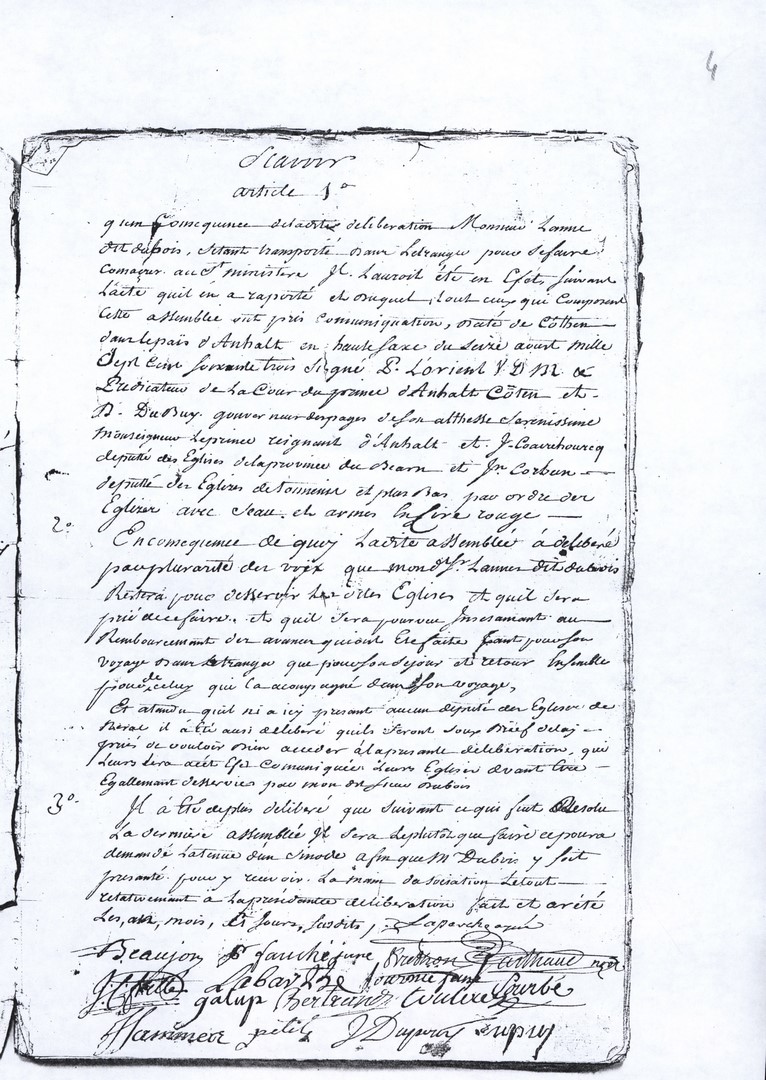 4
Scavoir
article 1°
quen Consequence de ladite deliberation Monsieur Lanne
dit dubois, setant transporté dans Letranger pour se faire
Consacrer au St ministere Jl. Lauroit été en Efets suivant
Lacte quil en a raporté et duquel tout ceux qui Composent
Cette assemblée ont pris Communiquation, daté de Cöthen
dans le païs d'Anhalt en haute Saxe du Seize aoust mille
Sept Cens soixante trois Signé P. L'orient V D M &
Predicateur de La Cour du prince d'Anhalt Cöten et
D. DuBuy gouverneur des pages de son althesse Serenissime
Monseigneur Le prince reignant d'Anhalt et J.
deputté des Eglises de la province du Bearn et Jn Corbun
deputté des Eglises de tonneins et plus Bas par ordre des
Eglizes avec Seau et armes En Cire rouge
2°. En consequence de quoy Ladite assemblée à deliberé
pau pluraité des voix que mondt Sr Lanne dit dubois
Restera pour desservir Les dites Eglises et quil sera
prié de ce faire, et quil sera pourvue Insesamant au
Rembourcement des avances qui ont Eté faite tant pour son
voyage dans Letranger que pour son Sejour et retour Ensemble
pour de celuy qui la acompagné dans son voyage,
Et atandu quil ni a icy presant aucun deputé des Eglises de
il à été aussi deliberé quils seront sous Brêf delaj
priés de vouloir Bien acceder à la presante deliberation, que
Leurs sera à cet Efet Comuniquée Leurs Eglises devant Etre
Egallement desservies par mon dt sieur dubois
3°. Jl à Eté de plus deliberé que suivant ce qui fut Resolu
La derniere assemblée Jl sera Leplutot que faire ce poura
demandé Latenue dun Sinode afin que Mr Dubois y soit
presanté pour y recevoir La main dasosiation Letout
relativement à La presante deliberation fait et arété
Les, an, mois, Et Jours, susdits,
Beaujon fauché jeune,
Labarthe fournié
galup Bertrand Couderc Courbé
petit J Dupuy Dupuy